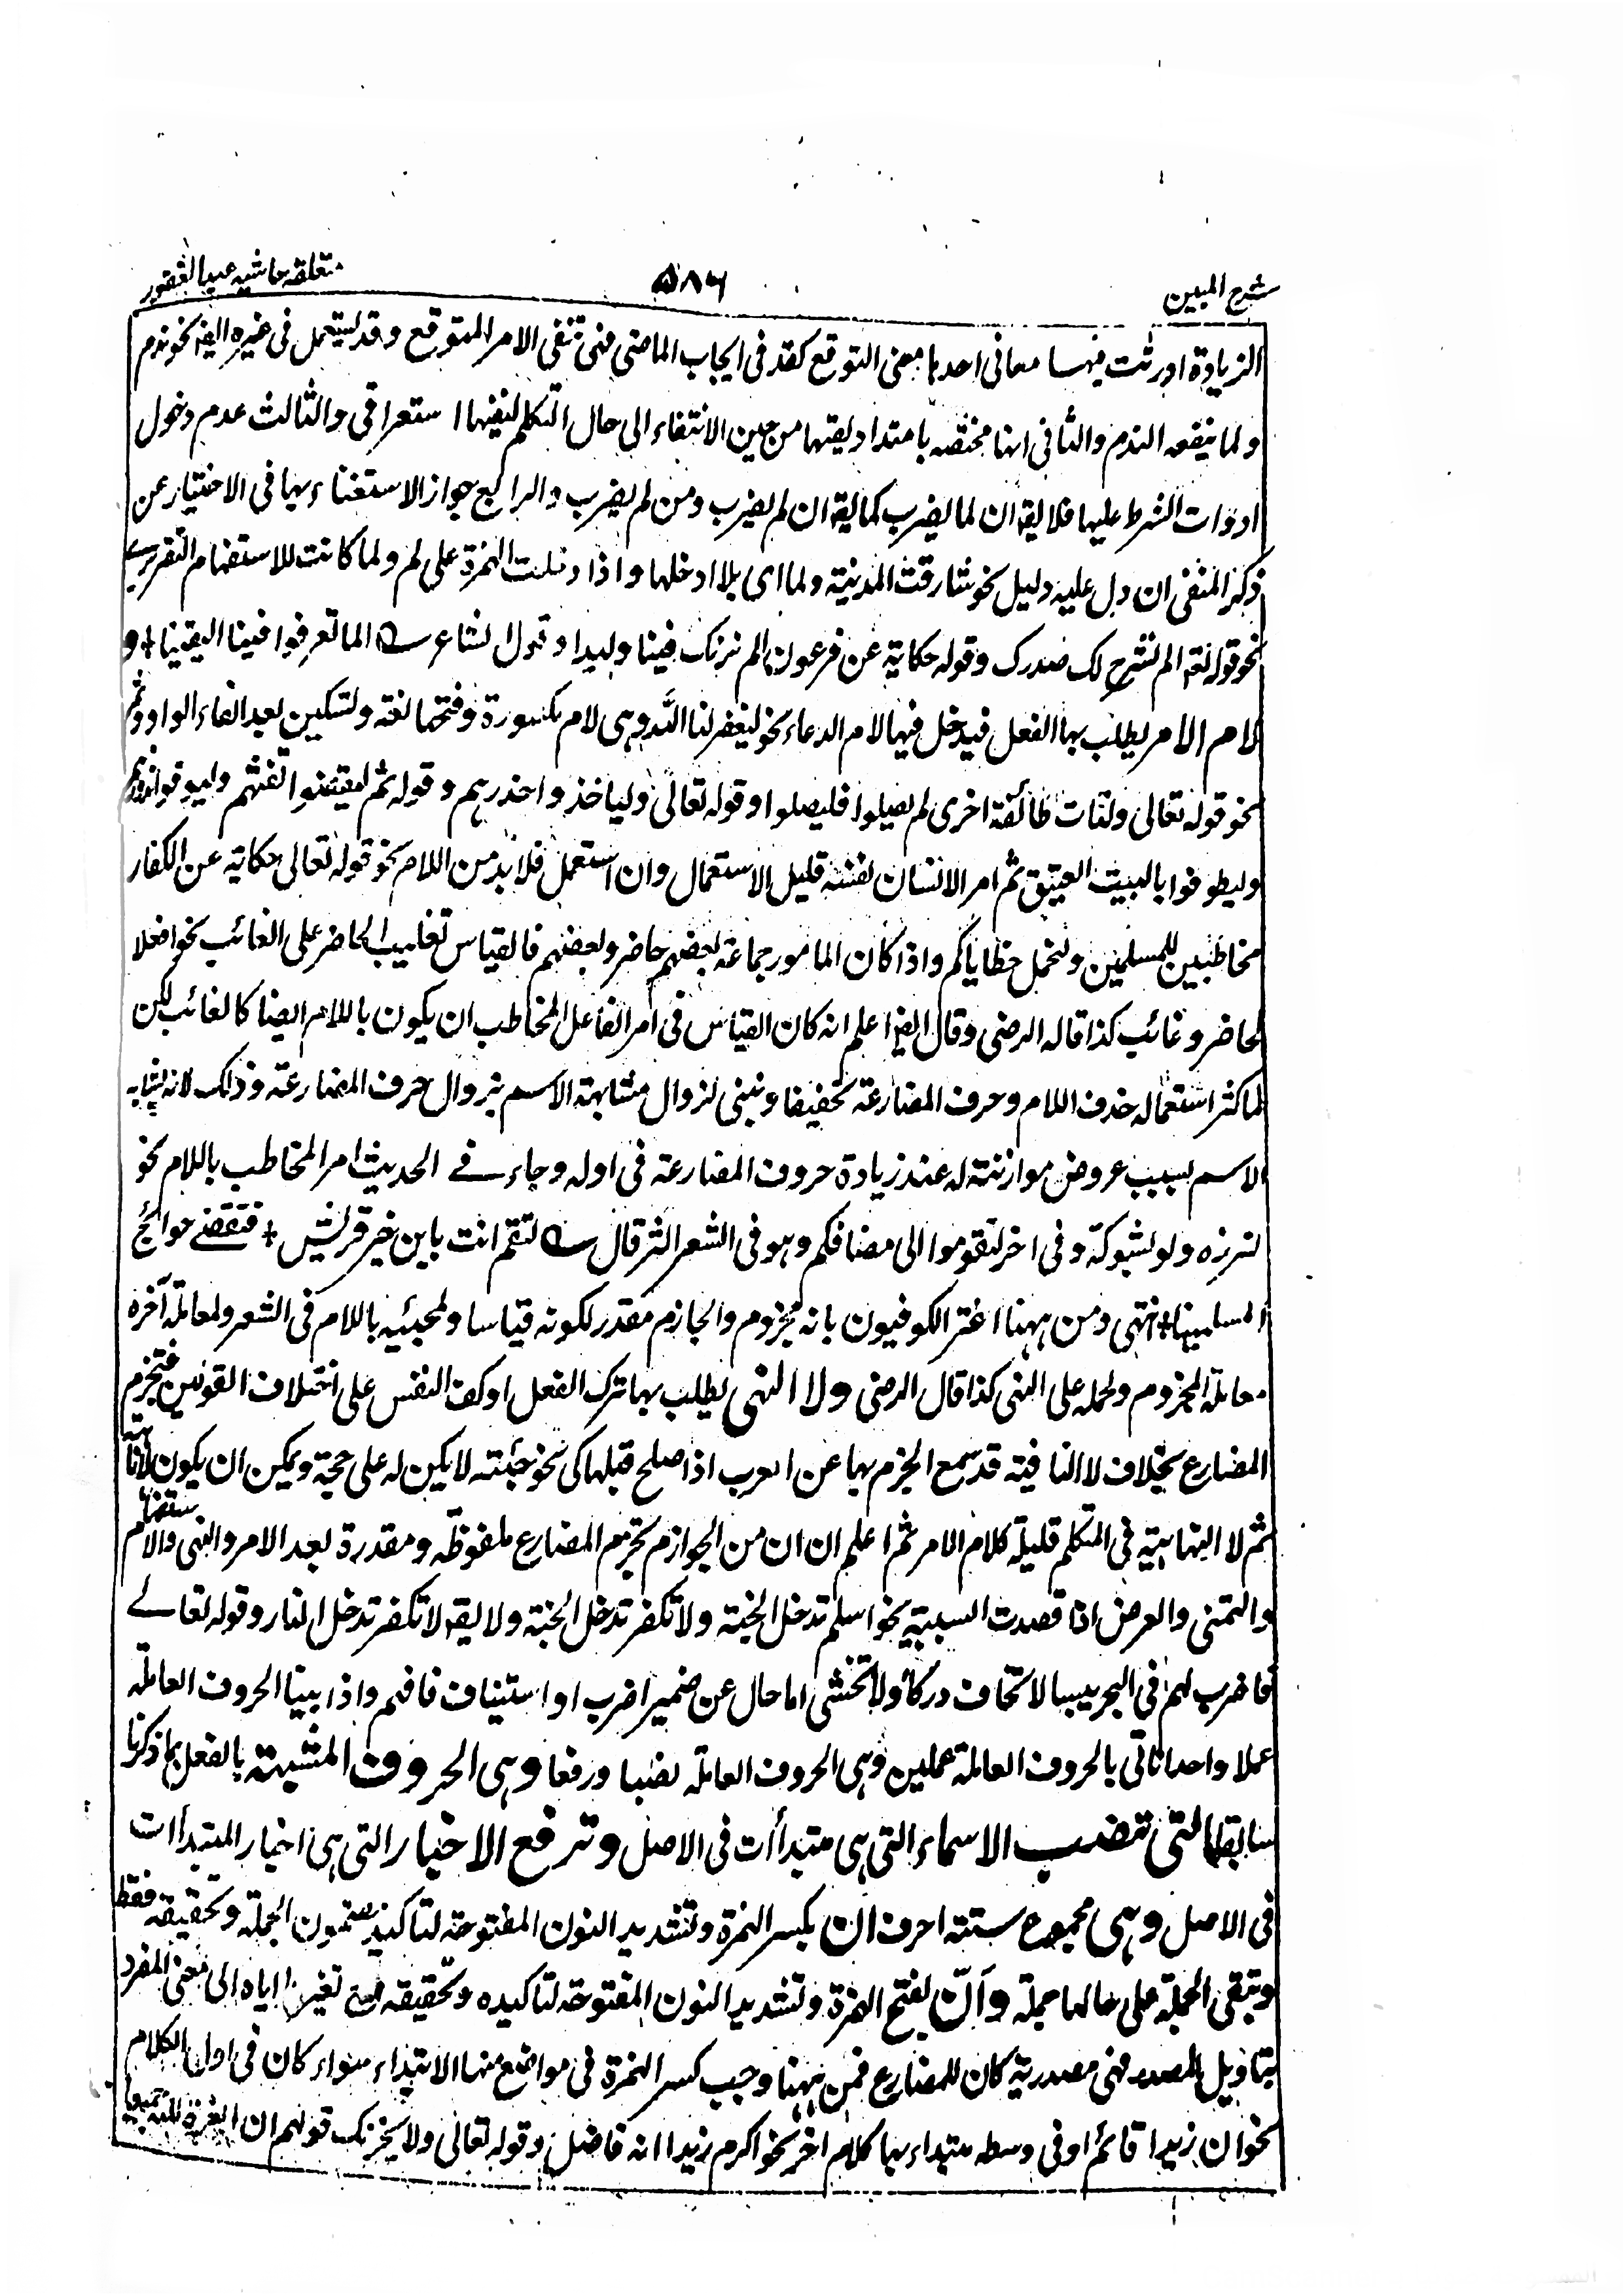 شرح المبين
۵۸۶
متعلقه حاشيه عبد الغفور
الزيادة اورثت فيها معانى احدها معنى التوقع كقد فى ايجاب الماضى فهى تنفى الامر المتوقع وقد يستعمل فى غيره ايضا نحو ندم
ولما ينفعه الندم والثانى انها مختصه بامتداد نفيها من حين الانتفاء الى حال التكلم لنفيها استغراقى والثالث عدم دخول
ادوات الشرط عليها فلا يقال ان لما يضرب كما يقال ان لم يضرب ومن لم يضرب والرابع جواز الاستغناء بها فى الاختيار عن
ذكر المنفى ان دل عليه دليل نحو شارفت المدينة ولما اى بلا ادخلها واذا دخلت الهمزة على لم ولما كانت للاستفهام التقريرى
نحو قوله تعالى الم نشرح لك صدرك وقوله حكاية عن فرعون الم نربك فينا وليدا وقول الشاعر الما تعرفوا فينا اليقينا و
لام الامر يطلب بها الفعل فيدخل فيها لام الدعاء نحو ليغفر لنا الله وهى لام مكسورة وفتحها لغة وتسكين بعد الفاء الواو وثم
نحو قوله تعالى ولتات طائفة اخرى لم يصلوا فليصلوا وقوله تعالى ولياخذوا حذرهم وقوله ثم ليقضوا تفثهم وليوفوا نذورهم
وليطوفوا بالبيت العتيق ثم امر الانسان لنفسه قليل الاستعمال وان استعمل فلا بد من اللام نحو قوله تعالى حكاية عن الكفار
مخاطبين للمسلمين ولنحمل خطاياكم واذا كان المامور جماعة بعضهم حاضر وبعضهم فالقياس تغليب الحاضر على الغائب نحو افعلا
لحاضر وغائب كذا قاله الرضى وقال ايضا اعلم انه كان القياس فى امر الفاعل المخاطب ان يكون باللام ايضا كالغائب لكن
لما كثر استعماله حذف اللام وحرف المضارعة تخفيفا وبنى لزوال مشابهة الاسم بزوال حرف المضارعة وذلك لانه يشابه
الاسم بسبب عروض موازنته له عند زيادة حروف المضارعة فى اوله وجاء فى الحديث امر المخاطب باللام نحو
لتزره ولو بشوكة وفى اخر لتقوموا الى مصافكم وهو فى الشعر اكثر قال لتقم انت يابن خير قريش + فتقضى حوائج
المسلمينا + انتهى ومن ههنا اغتر الكوفيون بانه مجزوم والجازم مقدر لكونه قياسا ولمجيئه باللام فى الشعر ولمعاملة آخره
معاملة المجزوم ولحمله على النهى كذا قال الرضى ولا النهى يطلب بها ترك الفعل او كف النفس على اختلاف القولين فتجزم
المضارع بخلاف لا النافية قد سمع الجزم بها عن العرب اذا صلح قبلها كى نحو جئته لا يكن له على حجة ويمكن ان يكون ناهية
ثم لا الناهية فى المتكلم قليلة كلام الامر ثم اعلم ان ان من الجوازم تجزم المضارع ملفوظة ومقدرة بعد الامر والنهى والاستفهام
والتمنى والعرض اذا قصدت السببية نحو اسلم تدخل الجنة ولا تكفر تدخل الجنة ولا يقال لا تكفر تدخل النار وقوله تعالى
فاضرب لهم فى البحر يبسا لا تخاف دركا ولا تخشى اما حال عن ضمير اضرب او استيناف فافهم واذا بينا الحروف العاملة
عملا واحدا ناتى بالحروف العاملة عملين وهى الحروف العاملة نصبا ورفعا وهى الحروف المشبهة بالفعل بما ذكرنا
سابقا التى تنصب الاسماء التى هى مبتدأات فى الاصل وترفع الاخبار التى هى اخبار المبتدأات
فى الاصل وهى مجموع ستة احرف ان بكسر الهمزة وتشديد النون المفتوحة لتاكيد مضمون الجملة وتحقيقه فقط
وتبقى الجملة على حالها جملة وأنّ بفتح الهمزة وتشديد النون المفتوحة لتاكيده وتحقيقه مع تغيير اياه الى معنى المفرد
بتاويل المصدر فهى مصدرية كان للمضارع فمن ههنا وجب كسر الهمزة فى مواضع منها الابتداء سواء كان فى اول الكلام
نحو ان زيدا قائم او فى وسطه مبتداء بها كلام اخر نحو اكرم زيدا انه فاضل وقوله تعالى ولا يحزنك قولهم ان العزة لله جميعا